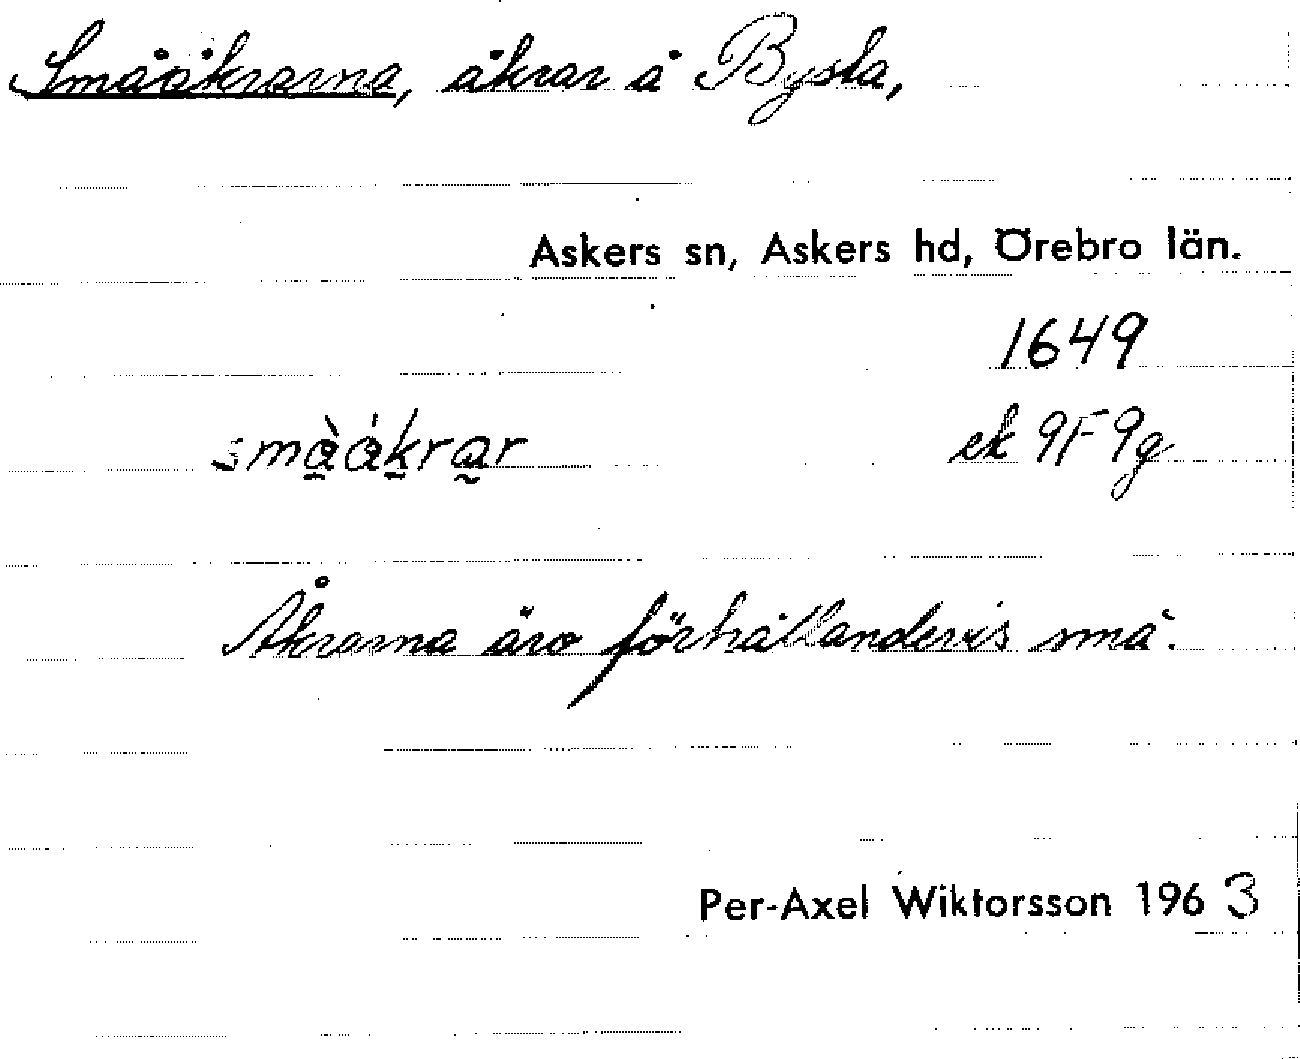 Smååkrarna, åkrar å Bysta,
Askers sn, Askers hd, Örebro län.
1649
smååkrar ek 9F9g
Åkrarna äro förhållandevis små.
Per-Axel Wiktorsson 1963